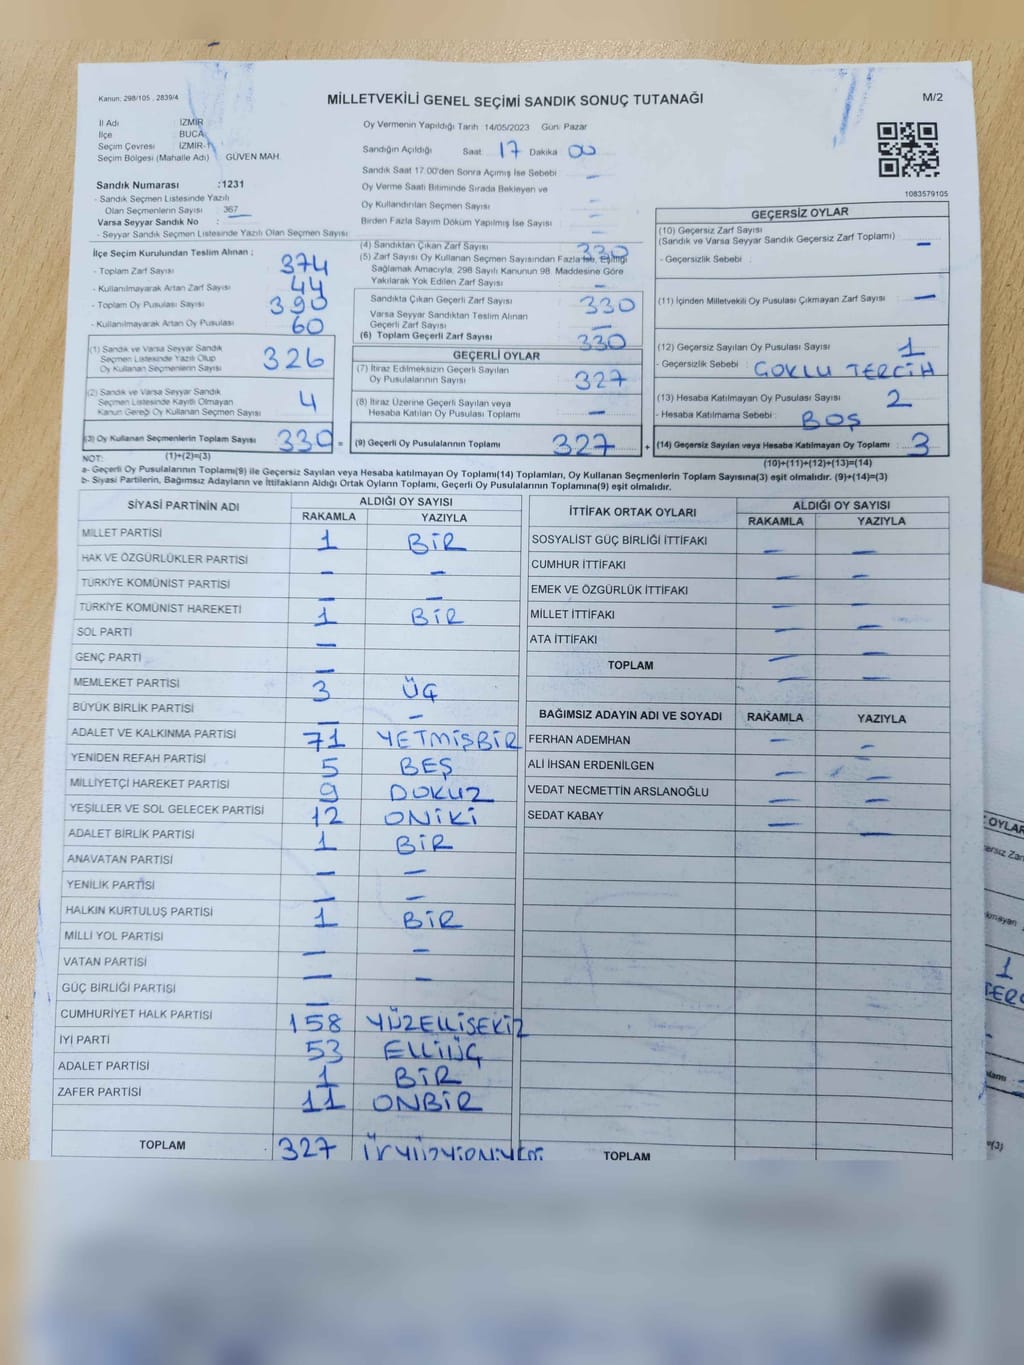 Kanun: 298/105 , 2839/4
MİLLETVEKİLİ GENEL SEÇİMİ SANDIK SONUÇ TUTANAĞI
M/2
İl Adı : İZMİR
İlçe : BUCA
Seçim Çevresi : İZMİR-1
Seçim Bölgesi (Mahalle Adı) : GÜVEN MAH.
Oy Vermenin Yapıldığı Tarih 14/05/2023 Gün: Pazar
Sandığın Açıldığı Saat: 17 Dakika 00
Sandık Saat 17.00'den Sonra Açımış İse Sebebi –
Oy Verme Saati Bitiminde Sırada Bekleyen ve
Oy Kullandırılan Seçmen Sayısı –
Birden Fazla Sayım Döküm Yapılmış İse Sayısı –
1083579105
Sandık Numarası :1231
- Sandık Seçmen Listesinde Yazılı
Olan Seçmenlerin Sayısı : 367
Varsa Seyyar Sandık No : –
- Seyyar Sandık Seçmen Listesinde Yazılı Olan Seçmen Sayısı:
İlçe Seçim Kurulundan Teslim Alınan ;
- Toplam Zarf Sayısı 374
- Kullanılmayarak Artan Zarf Sayısı 44
- Toplam Oy Pusulası Sayısı 390
- Kullanılmayarak Artan Oy Pusulası 60
(1) Sandık ve Varsa Seyyar Sandık
Seçmen Listesinde Yazılı Olup
Oy Kullanan Seçmenlerin Sayısı 326
(2) Sandık ve Varsa Seyyar Sandık
Seçmen Listesinde Kayıtlı Olmayan
Kanun Gereği Oy Kullanan Seçmen Sayısı 4
(3) Oy Kullanan Seçmenlerin Toplam Sayısı 330 =
(4) Sandıktan Çıkan Zarf Sayısı 330
(5) Zarf Sayısı Oy Kullanan Seçmen Sayısından Fazla İse, Eşitliği
Sağlamak Amacıyla, 298 Sayılı Kanunun 98. Maddesine Göre
Yakılarak Yok Edilen Zarf Sayısı –
Sandıkta Çıkan Geçerli Zarf Sayısı 330
Varsa Seyyar Sandıktan Teslim Alınan
Geçerli Zarf Sayısı –
(6) Toplam Geçerli Zarf Sayısı 330
GEÇERLİ OYLAR
(7) İtiraz Edilmeksizin Geçerli Sayılan
Oy Pusulalarının Sayısı 327
(8) İtiraz Üzerine Geçerli Sayılan veya
Hesaba Katılan Oy Pusulası Toplamı –
(9) Geçerli Oy Pusulalarının Toplamı 327 +
GEÇERSİZ OYLAR
(10) Geçersiz Zarf Sayısı
(Sandık ve Varsa Seyyar Sandık Geçersiz Zarf Toplamı) –
- Geçersizlik Sebebi :
(11) İçinden Milletvekili Oy Pusulası Çıkmayan Zarf Sayısı –
(12) Geçersiz Sayılan Oy Pusulası Sayısı 1
- Geçersizlik Sebebi : ÇOKLU TERCİH
(13) Hesaba Katılmayan Oy Pusulası Sayısı 2
- Hesaba Katılmama Sebebi : BOŞ
(14) Geçersiz Sayılan veya Hesaba Katılmayan Oy Toplamı : 3
NOT: (1)+(2)=(3)
(10)+(11)+(12)+(13)=(14)
a- Geçerli Oy Pusulalarının Toplamı(9) ile Geçersiz Sayılan veya Hesaba katılmayan Oy Toplamı(14) Toplamları, Oy Kullanan Seçmenlerin Toplam Sayısına(3) eşit olmalıdır. (9)+(14)=(3)
b- Siyasi Partilerin, Bağımsız Adayların ve İttifakların Aldığı Ortak Oyların Toplamı, Geçerli Oy Pusulalarının Toplamına(9) eşit olmalıdır.
SİYASİ PARTİNİN ADI ALDIĞI OY SAYISI
RAKAMLA YAZIYLA
MİLLET PARTİSİ 1 BİR
HAK VE ÖZGÜRLÜKLER PARTİSİ – –
TÜRKİYE KOMÜNİST PARTİSİ – –
TÜRKİYE KOMÜNİST HAREKETİ 1 BİR
SOL PARTİ –
GENÇ PARTİ –
MEMLEKET PARTİSİ 3 ÜÇ
BÜYÜK BİRLİK PARTİSİ – –
ADALET VE KALKINMA PARTİSİ 71 YETMİŞBİR
YENİDEN REFAH PARTİSİ 5 BEŞ
MİLLİYETÇİ HAREKET PARTİSİ 9 DOKUZ
YEŞİLLER VE SOL GELECEK PARTİSİ 12 ONİKİ
ADALET BİRLİK PARTİSİ 1 BİR
ANAVATAN PARTİSİ – –
YENİLİK PARTİSİ – –
HALKIN KURTULUŞ PARTİSİ 1 BİR
MİLLİ YOL PARTİSİ – –
VATAN PARTİSİ – –
GÜÇ BİRLİĞİ PARTİSİ –
CUMHURİYET HALK PARTİSİ 158 YÜZELLİSEKİZ
İYİ PARTİ 53 ELLİÜÇ
ADALET PARTİSİ 1 BİR
ZAFER PARTİSİ 11 ONBİR
TOPLAM 327
İTTİFAK ORTAK OYLARI ALDIĞI OY SAYISI
RAKAMLA YAZIYLA
SOSYALİST GÜÇ BİRLİĞİ İTTİFAKI – –
CUMHUR İTTİFAKI – –
EMEK VE ÖZGÜRLÜK İTTİFAKI – –
MİLLET İTTİFAKI – –
ATA İTTİFAKI – –
TOPLAM – –
BAĞIMSIZ ADAYIN ADI VE SOYADI RAKAMLA YAZIYLA
FERHAN ADEMHAN – –
ALİ İHSAN ERDENİLGEN – –
VEDAT NECMETTİN ARSLANOĞLU – –
SEDAT KABAY – –
TOPLAM